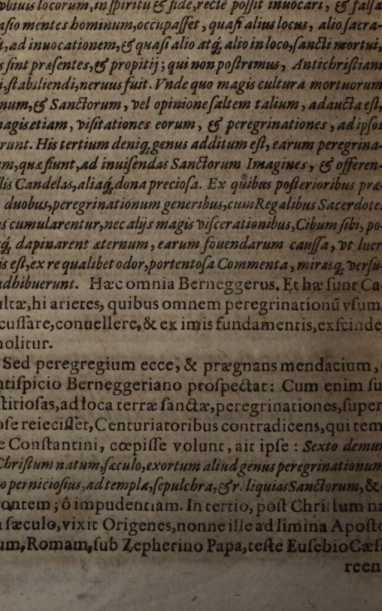 obsius locorum, in spiritu & fide, recte possit inuocari, & falsa
asio mentes hominum, occupasset, quasi alius locus, alio sacra-
i, ad inuocationem, & quasi alio atq́, alio in loco, sancti mortui,
s sint præsentes, & propitij; qui non postremus, Antichristiani
i, stabiliendi, neruus fuit. Vnde quo magis cultura mortuorum
num, & Sanctorum, vel opinione saltem talium, adaucta est,
nagis etiam, visitationes eorum, & peregrinationes, ad ipsos
runt. His tertium deniq́, genus additum est, earum peregrina-
m, quæ fiunt, ad inuisendas Sanctorum Imagines, & offeren-
lis Candelas, aliaq́, dona preciosa. Ex quibus posterioribus præ-
duobus, peregrinationum generibus, cum Regalibus Sacerdotes
s cumularentur, nec alijs magis viscerationibus, Cibum sibi, po-
q́, dapinarent æternum, earum fouendarum caussa, vt lucr
is est, ex re qualibet odor, portentosa Commenta, miraq́, versu-
adhibuerunt. Hæc omnia Berneggerus. Et hæ sunt Ca-
ultæ, hi arietes, quibus omnem peregrinationũ vsum,
cussare, conuellere, & ex imis fundamentis, exscinde
nolitur.
Sed peregregium ecce, & prægnans mendacium,
ntispicio Berneggeriano prospectat: Cum enim su
stitiosas, ad loca terræ sanctæ, peregrinationes, super
ose reiecisset, Centuriatoribus contradicens, qui tem
e Constantini, cœpisse volunt, ait ipse: Sexto demum
Christum natum, sæculo, exortum aliud genus peregrinationum
o perniciosius, ad templa, sepulchra, & reliquias Sanctorum, &
ontem; ô impudentiam. In tertio, post Christum na
sæculo, vixit Origenes, nonne ille ad limina Aposto
um, Romam, sub Zepherino Papa, teste Eusebio Cæs
reen